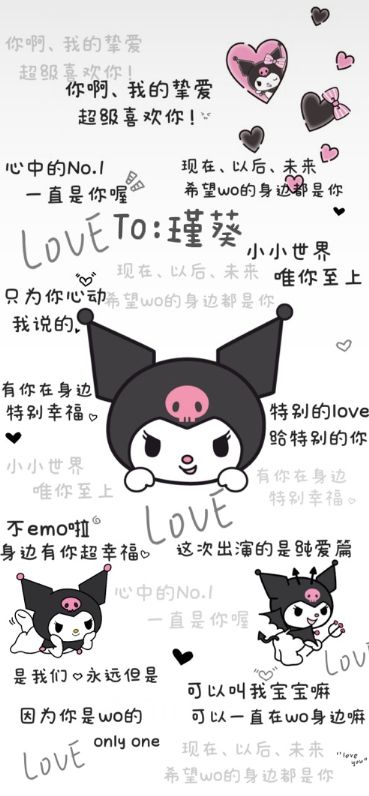 你啊、我的挚爱
超级喜欢你!
你啊、我的挚爱
超级喜欢你!
心中的No.1
一直是你喔
现在、以后、未来
希望wo的身边都是你
LOVE
TO:瑾葵
小小世界
唯你至上
现在、以后、未来
希望wo的身边都是你
只为你心动
我说的.
有你在身边
特别幸福。
特别的love
给特别的你
小小世界
唯你至上
有你在身边
特别幸福。
LOVE
不emo啦
身边有你超幸福
这次出演的是纯爱篇
心中的No.1
一直是你喔
LOVE
是我们♡永远但是
可以叫我宝宝嘛
可以一直在wo身边嘛
因为你是wo的
only one
LOVE
现在、以后、未来
希望wo的身边都是你
"love you"